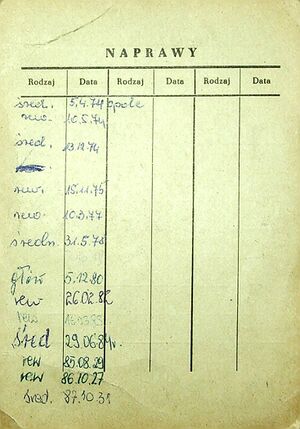 NAPRAWY
Rodzaj Data Rodzaj Data Rodzaj Data
śred. 5.4.74 opole
rew. 10.5.74
śred. 13.12.74
rew. 15.11.75
rew. 10.3.77
średn. 31.5.78
głów 5.12.80
rew 26.02.82
rew
śred 29.06.84r.
rew 85.08.29
rew 86.10.27
śred. 87.10.31